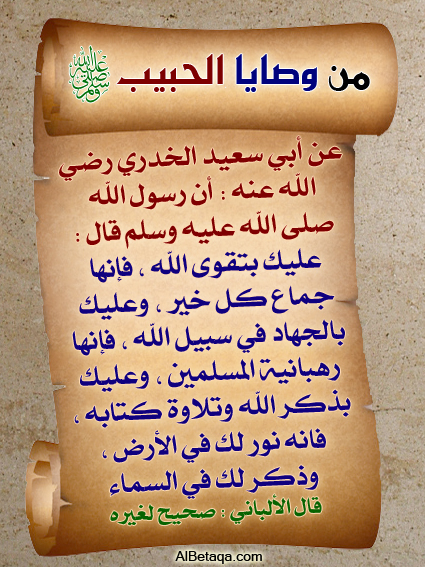 من وصايا الحبيب ﷺ
عن أبي سعيد الخدري رضي
الله عنه : أن رسول الله
صلى الله عليه وسلم قال :
عليك بتقوى الله ، فإنها
جماع كل خير ، وعليك
بالجهاد في سبيل الله ، فإنها
رهبانية المسلمين ، وعليك
بذكر الله وتلاوة كتابه ،
فانه نور لك في الأرض ،
وذكر لك في السماء
قال الألباني : صحيح لغيره
AlBetaqa.com